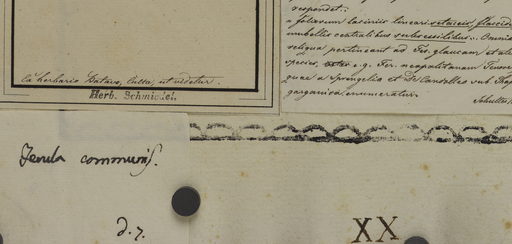 ex herbario Batavo, culta, ut videtur.
Herb. Schmiedel.
respondet.
a foliorum laciniis linearisetaceis, flaccid
umbellis centralibus subsessilibus. Omnia
reliqua pertineant ad Fer. glaucam, et alia
species, e.g. Fer. neapolitanam Tenore
quae a Sprengelio et De Candolleo sub
garganica, enumeratur.
Schultes
Ferula communis.
d. 7.
XX